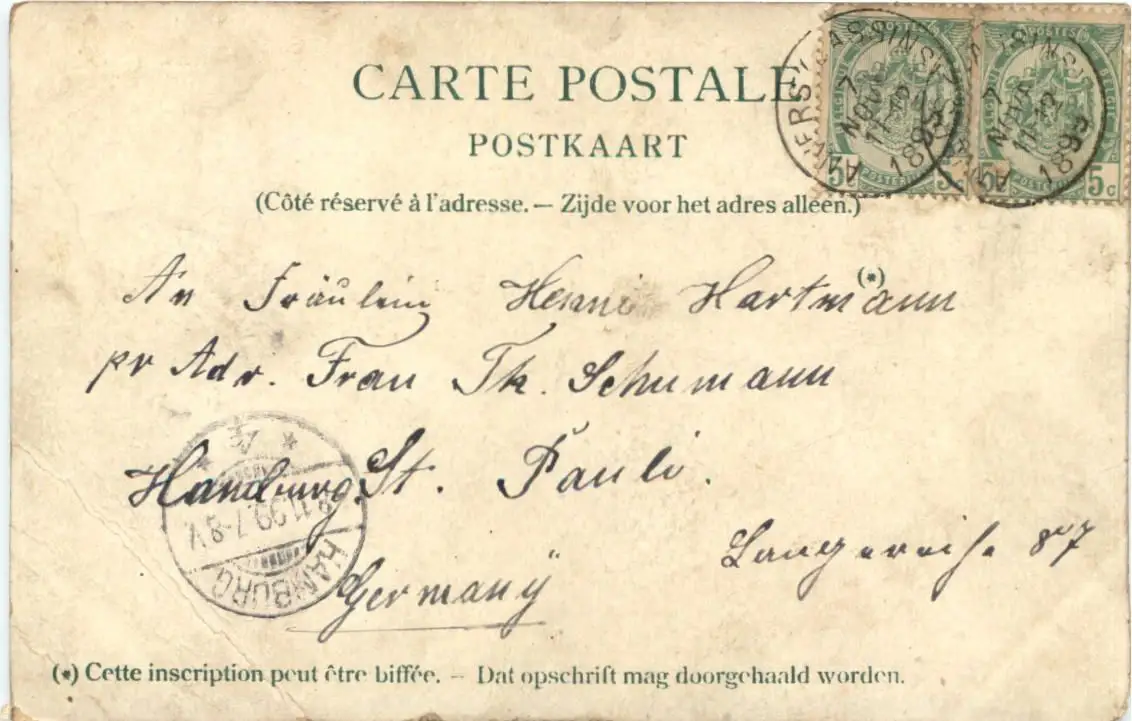 CARTE POSTALE
POSTKAART
(Côté réservé à l'adresse. — Zijde voor het adres alleen.)
POSTES
POSTES
5c 5c
5c 5c
7
NOV
11-12
1899
7
NOV
11-12
1899
(*)
An Fräulein Henni Hartmann
pr Adr. Frau Th. Schumann
Hamburg. St. Pauli.
Langereihe 87
Germanÿ
* 4 *
9.11.99. 7-8 V.
HAMBURG
(*) Cette inscription peut être biffée. — Dat opschrift mag doorgehaald worden.